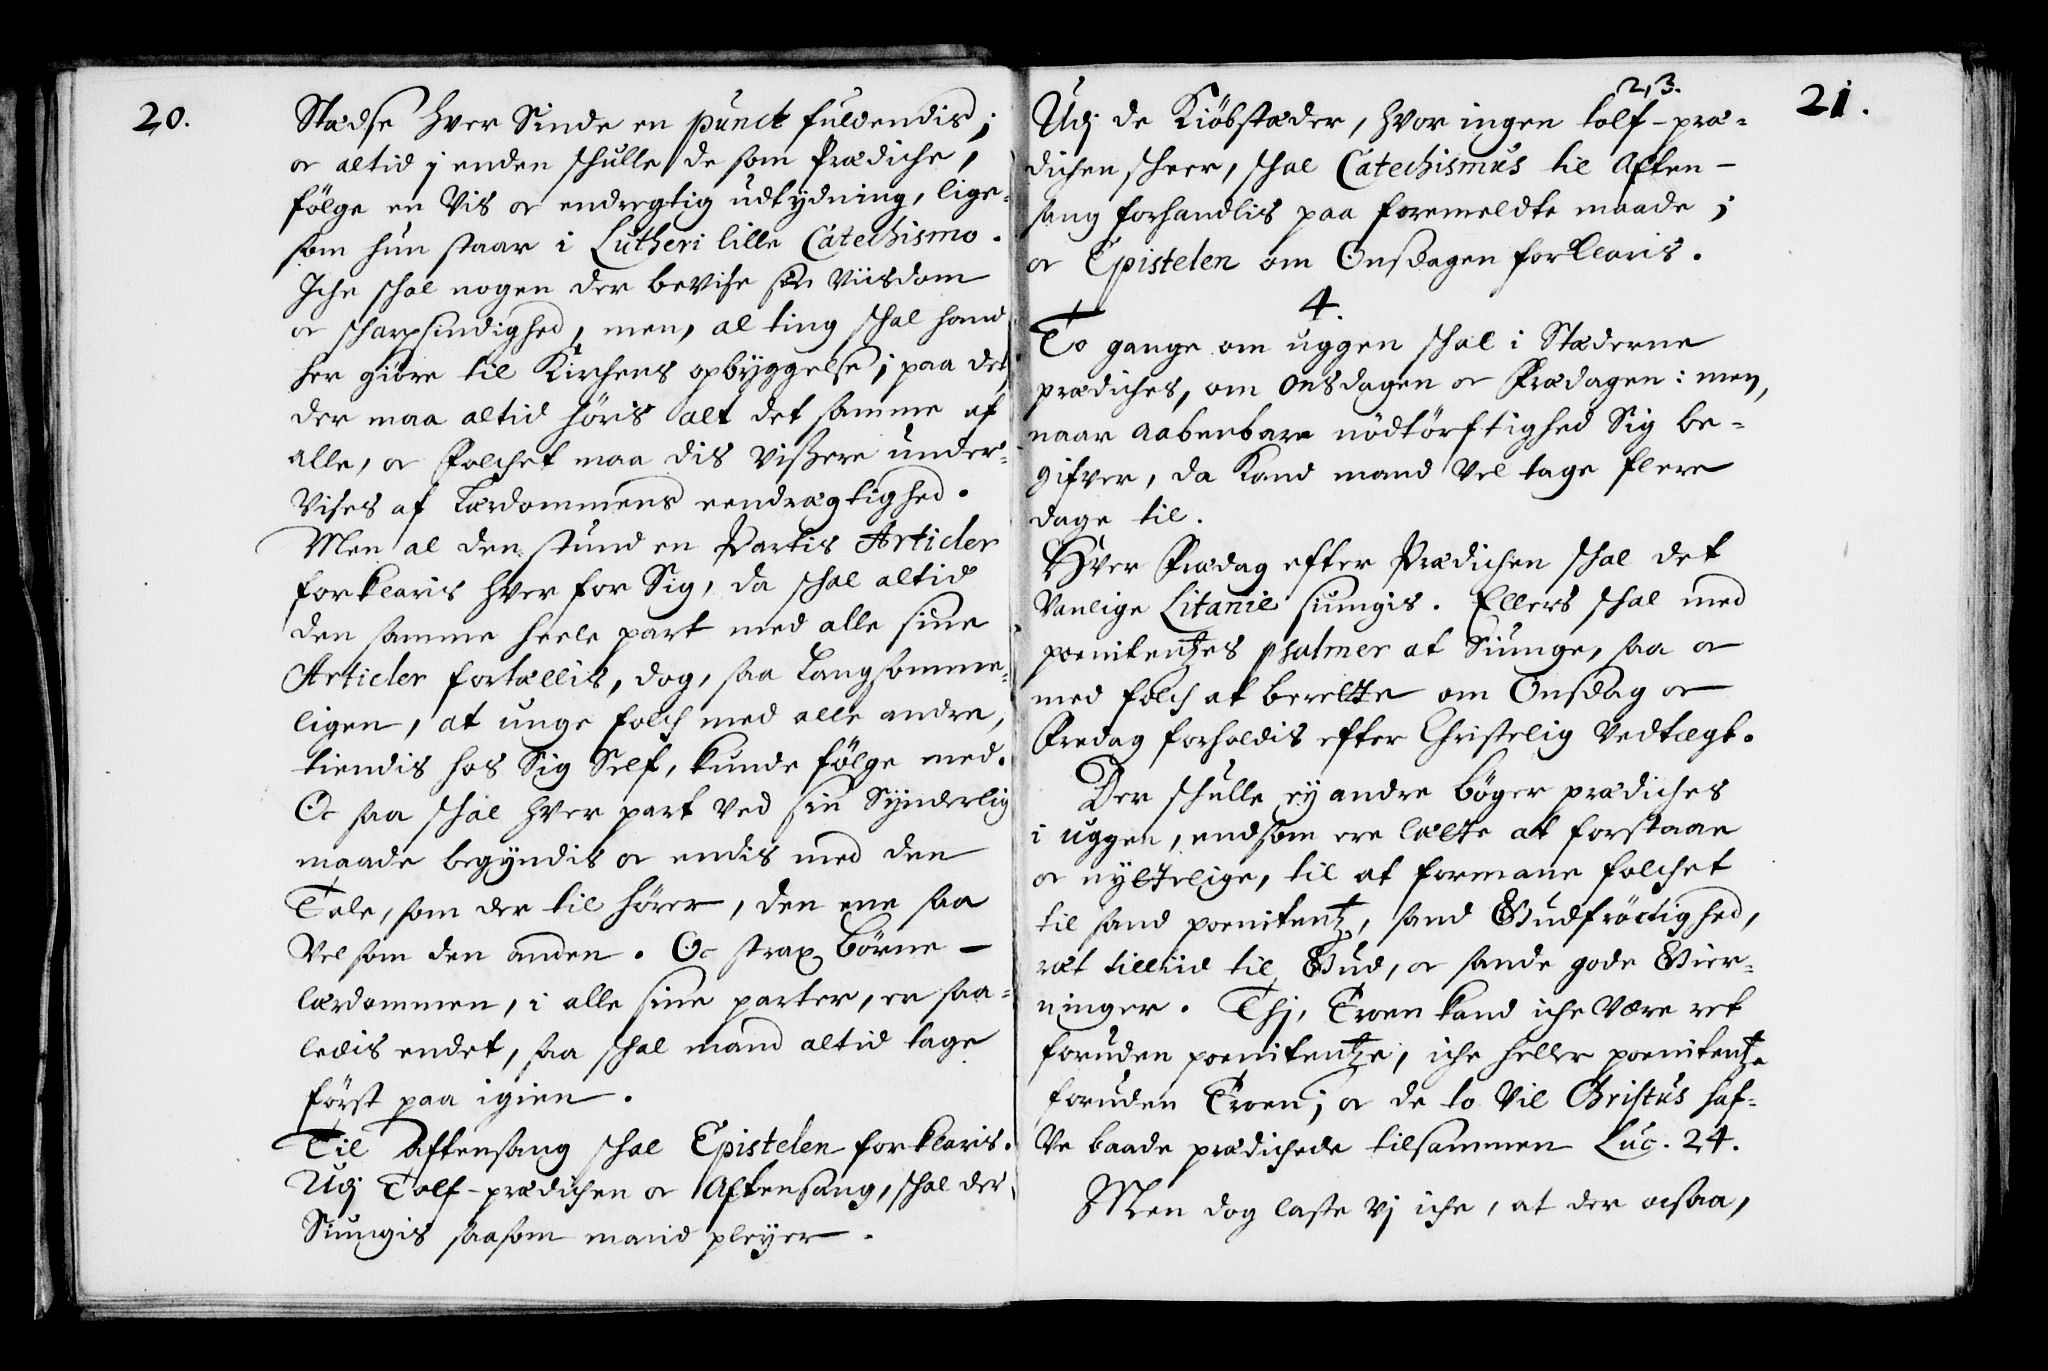 20.
Stædse hver Sinde en punct fuldendis;
oc altid j enden schulle de som Prædiche,
følge en Vis oc endregtig udtydning, lige-
som hun staar i Lutheri lille Catechismo.
Iche schal nogen der bevise sin Viisdom
oc scharpsindighed, men, al ting schal hand
her giöre til Kirchens opbyggelse; paa det
der maa altid höris alt det samme af
alle, oc Folchet maa dis Vissere under-
Vises af Lærdommens eendrægtighed.
Men al den stund en Partis Articler
forklaris hver for Sig, da schal altid
den samme heele part med alle sine
Articler fortællis, dog, saa Langsomme-
ligen, at unge folch med alle andre,
tiendis hos Sig Self, kunde fölge med.
Oc saa schal hver part ved sin Synderlig
maade begyndis oc endis med den
Tale, som der til hörer, den ene saa
Vel som den anden. Oc strax Börne-
lærdommen, i alle sine parter, er saa-
ledis endet, saa schal mand altid tage
först paa igien.
Til Aftensang schal Epistelen forklaris.
Udj Tolf-prædichen oc Aftensang, schal der
Siungis saasom mand pleyer.
21.
2,3.
Udj de Kiöbstæder, hvor ingen tolf-præ-
dichen scheer, schal Catechismus til Aften-
sang forhandlis paa foremeldte maade;
oc Epistelen om Onsdagen forklaris.
4.
To gange om uggen schal i Stæderne
prædiches, om Onsdagen oc Frædagen: men,
naar aabenbare nödtörftighed Sig be-
gifver, da Kand mand Vel tage flere
dage til.
Hver Frædag efter Prædichen schal det
Vanlige Litanie siungis. Ellers schal med
poenitentzes psalmer at Siunge, saa oc
med folch at berette om Onsdag oc
Fredag forholdis efter Christelig Vedtægt.
Der schulle ey andre böger prædiches
i uggen, end som ere lætte at forstaae
oc nyttelige, til at formane folchet
til sand poenitentz, sand Gudfröctighed,
ræt tilliid til Gud, oc sande gode Gier-
ninger. Thj, Troen kand iche Være ret
foruden poenitentze, iche heller poenitentze
foruden Troen; oc de to Vil Christus haf-
Ve baade prædichede tilsammen Luc. 24.
Men dog laste Vj iche, at der ocsaa,